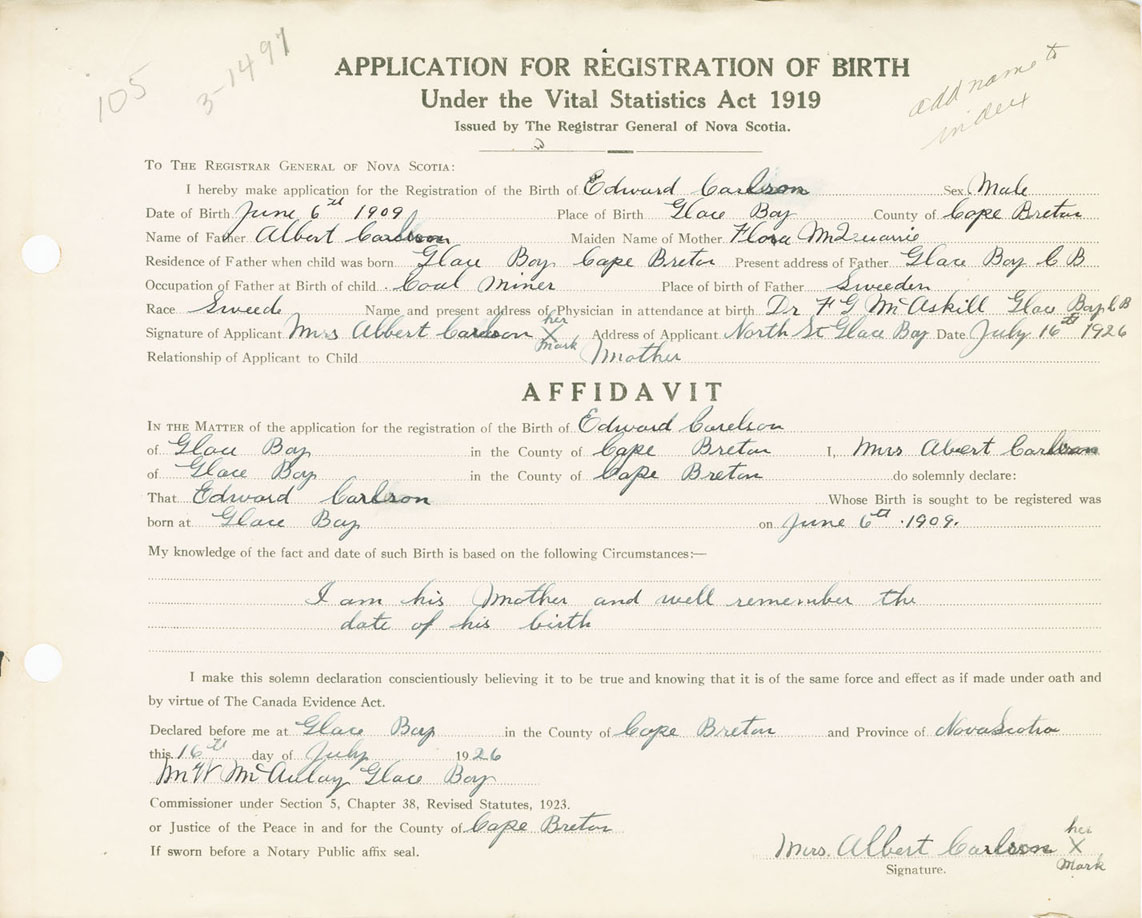 105
3-1497
add name to
index
APPLICATION FOR REGISTRATION OF BIRTH
Under the Vital Statistics Act 1919
Issued by The Registrar General of Nova Scotia.
TO THE REGISTRAR GENERAL OF NOVA SCOTIA:
I hereby make application for the Registration of the Birth of Edward Carlson Sex Male
Date of Birth June 6th 1909 Place of Birth Glace Bay County of Cape Breton
Name of Father Albert Carlson Maiden Name of Mother Flora McQuarrie
Residence of Father when child was born Glace Bay Cape Breton Present address of Father Glace Bay C B
Occupation of Father at Birth of child Coal Miner Place of birth of Father Sweeden
Race Sweede Name and present address of Physician in attendance at birth Dr F G McAskill Glace Bay C B
Signature of Applicant Mrs Albert Carlson her X mark Address of Applicant North St Glace Bay Date July 16th 1926
Relationship of Applicant to Child Mother
AFFIDAVIT
IN THE MATTER of the application for the registration of the Birth of Edward Carelson
of Glace Bay in the County of Cape Breton I, Mrs Abert Carlson
of Glace Bay in the County of Cape Breton do solemnly declare:
That Edward Carlson Whose Birth is sought to be registered was
born at Glace Bay on June 6th 1909.
My knowledge of the fact and date of such Birth is based on the following Circumstances:—
I am his Mother and well remember the
date of his birth
I make this solemn declaration conscientiously believing it to be true and knowing that it is of the same force and effect as if made under oath and
by virtue of The Canada Evidence Act.
Declared before me at Glace Bay in the County of Cape Breton and Province of Nova Scotia
this 16th day of July 1926
M W McAulay Glace Bay
Commissioner under Section 5, Chapter 38, Revised Statutes, 1923.
or Justice of the Peace in and for the County of Cape Breton
If sworn before a Notary Public affix seal.
Mrs. Albert Carlson her X mark
Signature.